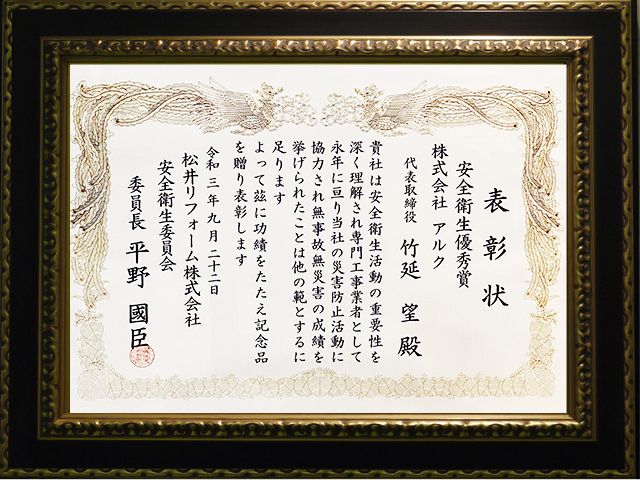 表彰状
安全衛生優秀賞
株式会社 アルク
代表取締役 竹延 望 殿
貴社は安全衛生活動の重要性を
深く理解され専門工事業者として
永年に亘り当社の災害防止活動に
協力され無事故無災害の成績を
挙げられたことは他の範とするに
足ります
よって茲に功績をたたえ記念品
を贈り表彰します
令和三年九月二十二日
松井リフォーム株式会社
安全衛生委員会
委員長 平野 國臣